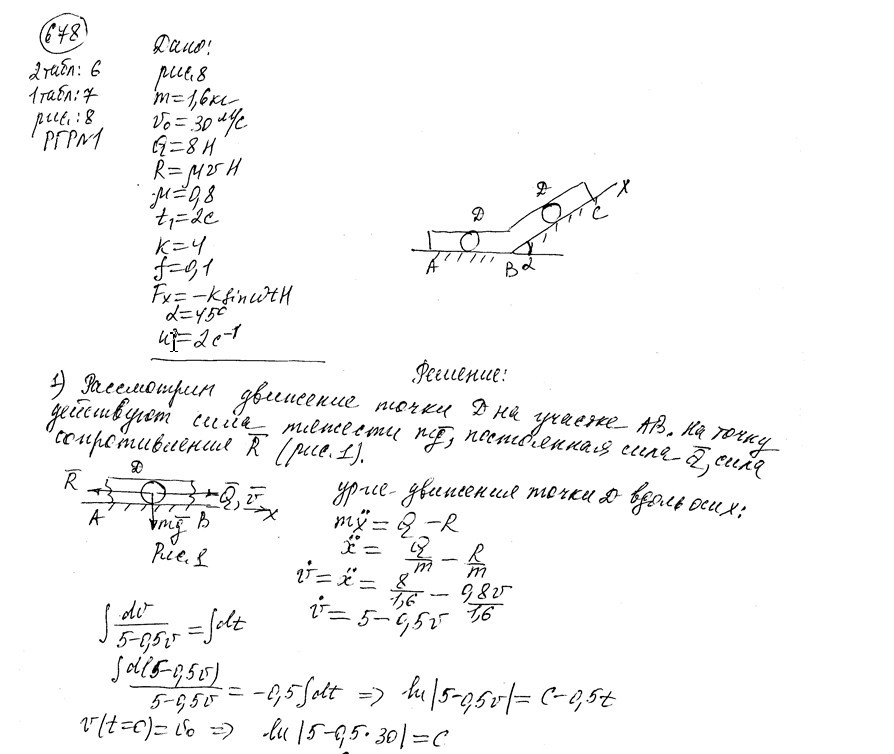 678
2 табл: 6
1 табл: 7
рис.: 8
РГР №1
Дано:
рис. 8
m=1,6кг
v₀=30 м/с
Q=8 Н
R=μv Н
μ=0,8
t₁=2с
K=4
f=0,1
Fx=-K sin ωt Н
α=45°
=2с⁻¹
D D X
A B α C
Решение:
1) Рассмотрим движение точки D на участке AB. На точку
действуют сила тяжести mg̅, постоянная сила Q̅, сила
сопротивления R̅ (рис. 1).
D
R̅ Q̅, v̅
A mg̅ B X
Рис. 1
ур-ие движения точки D вдоль оси x:
mẍ = Q - R
ẍ = Q/m - R/m
v̇ = ẍ = 8/1,6 - 0,8v/1,6
v̇ = 5 - 0,5v
∫ dv/(5-0,5v) = ∫dt
∫ d(5-0,5v)/(5-0,5v) = -0,5∫dt => ln|5-0,5v| = C-0,5t
v(t=0)=v₀ => ln|5-0,5·30|=C